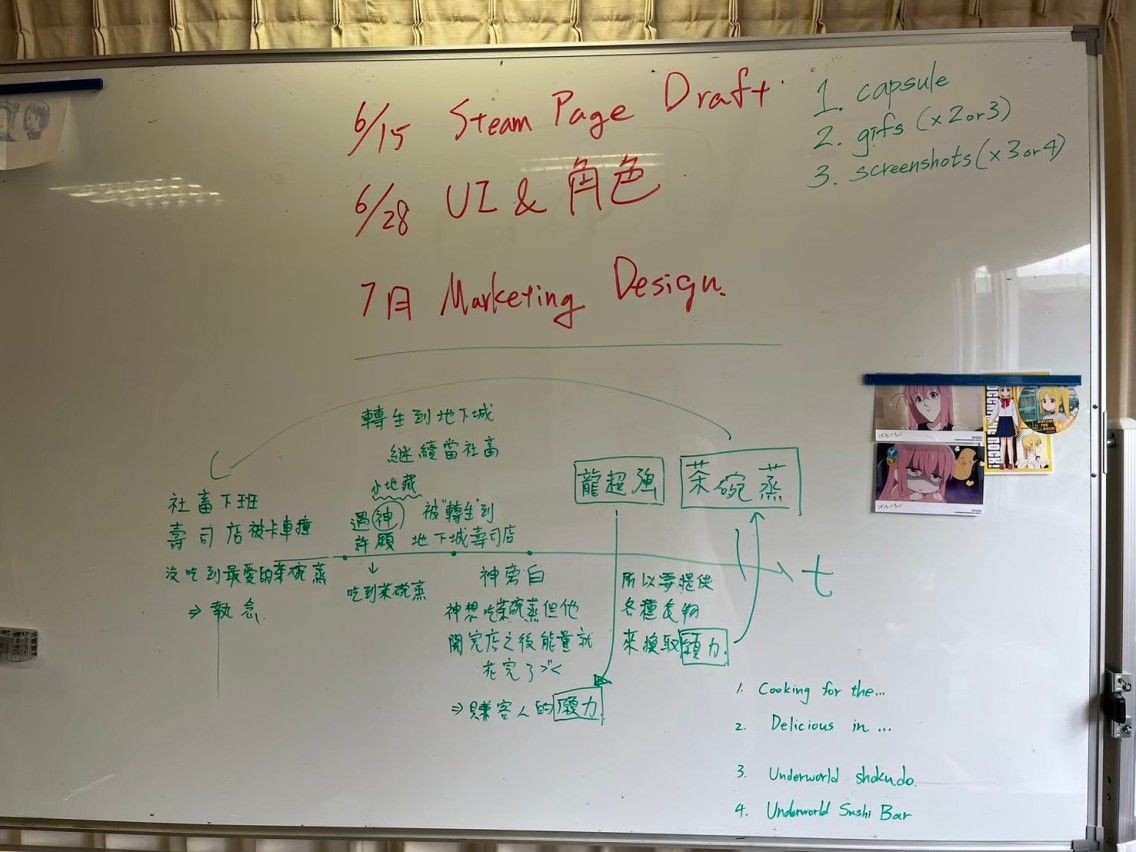 6/15 Steam Page Draft
6/28 UI & 角色
7月 Marketing Design.
1. capsule
2. gifs (x2or3)
3. screenshots (x3or4)
轉生到地下城
繼續當社畜
小地藏
遇神 被"轉生"到
許願 地下城壽司店
社畜下班
壽司店被卡車撞
沒吃到最愛的茶碗蒸
⇒ 執念
↓
吃到茶碗蒸
神旁白
神想吃茶碗蒸但他
開完店之後能量就
花完了
⇒賺客人的願力
龍超強
茶碗蒸
所以要提供
各種食物
來換取願力
t
1. Cooking for the...
2. Delicious in ...
3. Underworld shokudo
4. Underworld Sushi Bar